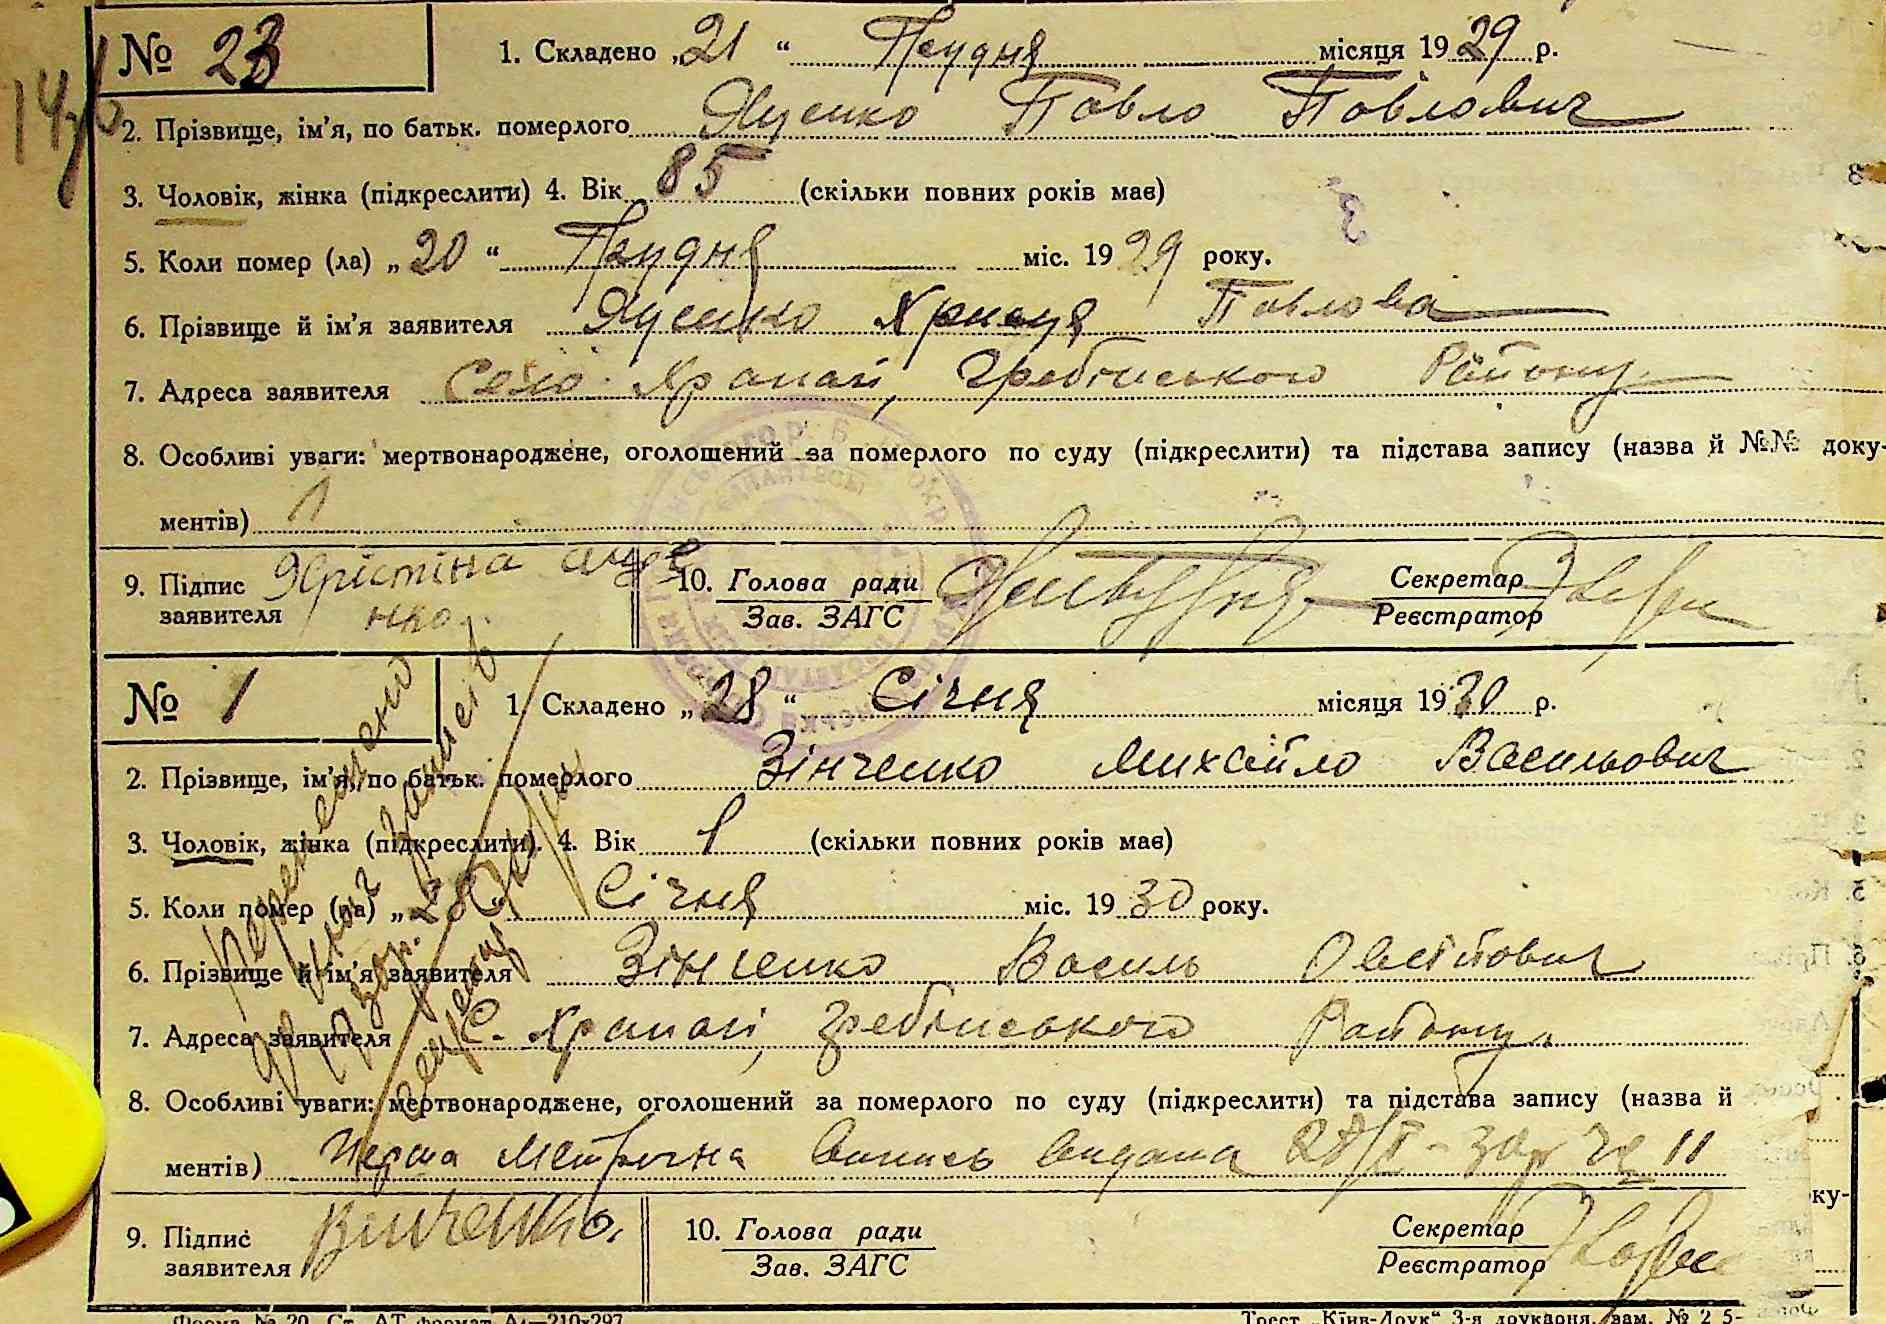 № 23
1. Складено „21“ Грудня місяця 1929 р.
2. Прізвище, ім'я, по батьк. померлого Яценко Павло Павлович
3. Чоловік, жінка (підкреслити) 4. Вік 85 (скільки повних років має)
5. Коли помер (ла) „20“ Грудня міс. 1929 року.
6. Прізвище й ім'я заявителя Яценко Христя Павлова
7. Адреса заявителя Село Храпачі, Гребінського Району
8. Особливі уваги: мертвонароджене, оголошений за померлого по суду (підкреслити) та підстава запису (назва й №№ доку-
ментів)
9. Підпис заявителя Христіна
10. Голова ради
Зав. ЗАГС
Секретар
Реєстратор
№ 1
1. Складено „28“ Січня місяця 1930 р.
2. Прізвище, ім'я, по батьк. померлого Зінченко Михайло Васильович
3. Чоловік, жінка (підкреслити). 4. Вік 1 (скільки повних років має)
5. Коли помер (ла) „28“ Січня міс. 1930 року.
6. Прізвище й ім'я заявителя Зінченко Василь
7. Адреса заявителя С. Храпачі, Гребінського Району
8. Особливі уваги: мертвонароджене, оголошений за померлого по суду (підкреслити) та підстава запису (назва й
ментів) Перша Метрична Випись видана 28/I-30р № 11
9. Підпис заявителя Зінченко.
10. Голова ради
Зав. ЗАГС
Секретар
Реєстратор
Форма № 20. Ст. АТ формат А₄—210х297
Трест „Київ-Друк“ 3-я друкарня, зам. №